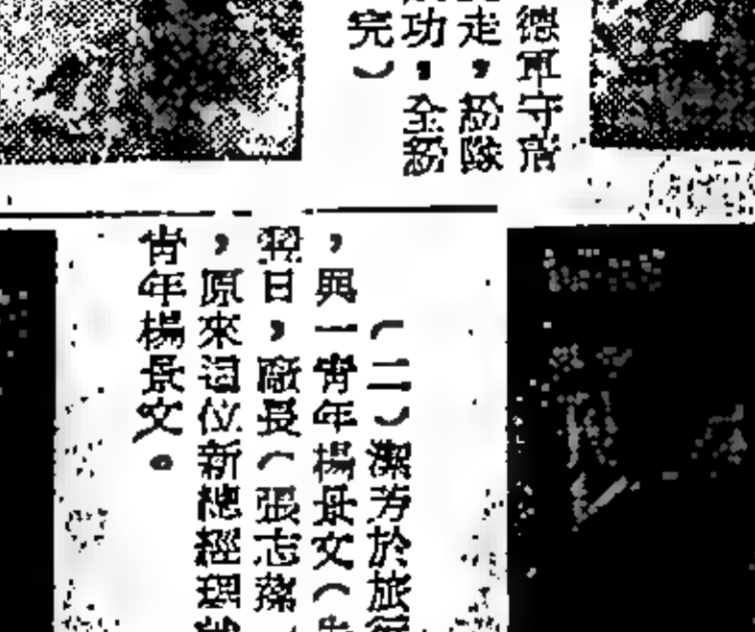 德軍守
走，紛隊
功，全紛
完）
（二）潔芳於旅行
，與一青年楊景文（
翌日，廠長（張志
，原來這位新總經理就
青年楊景文。